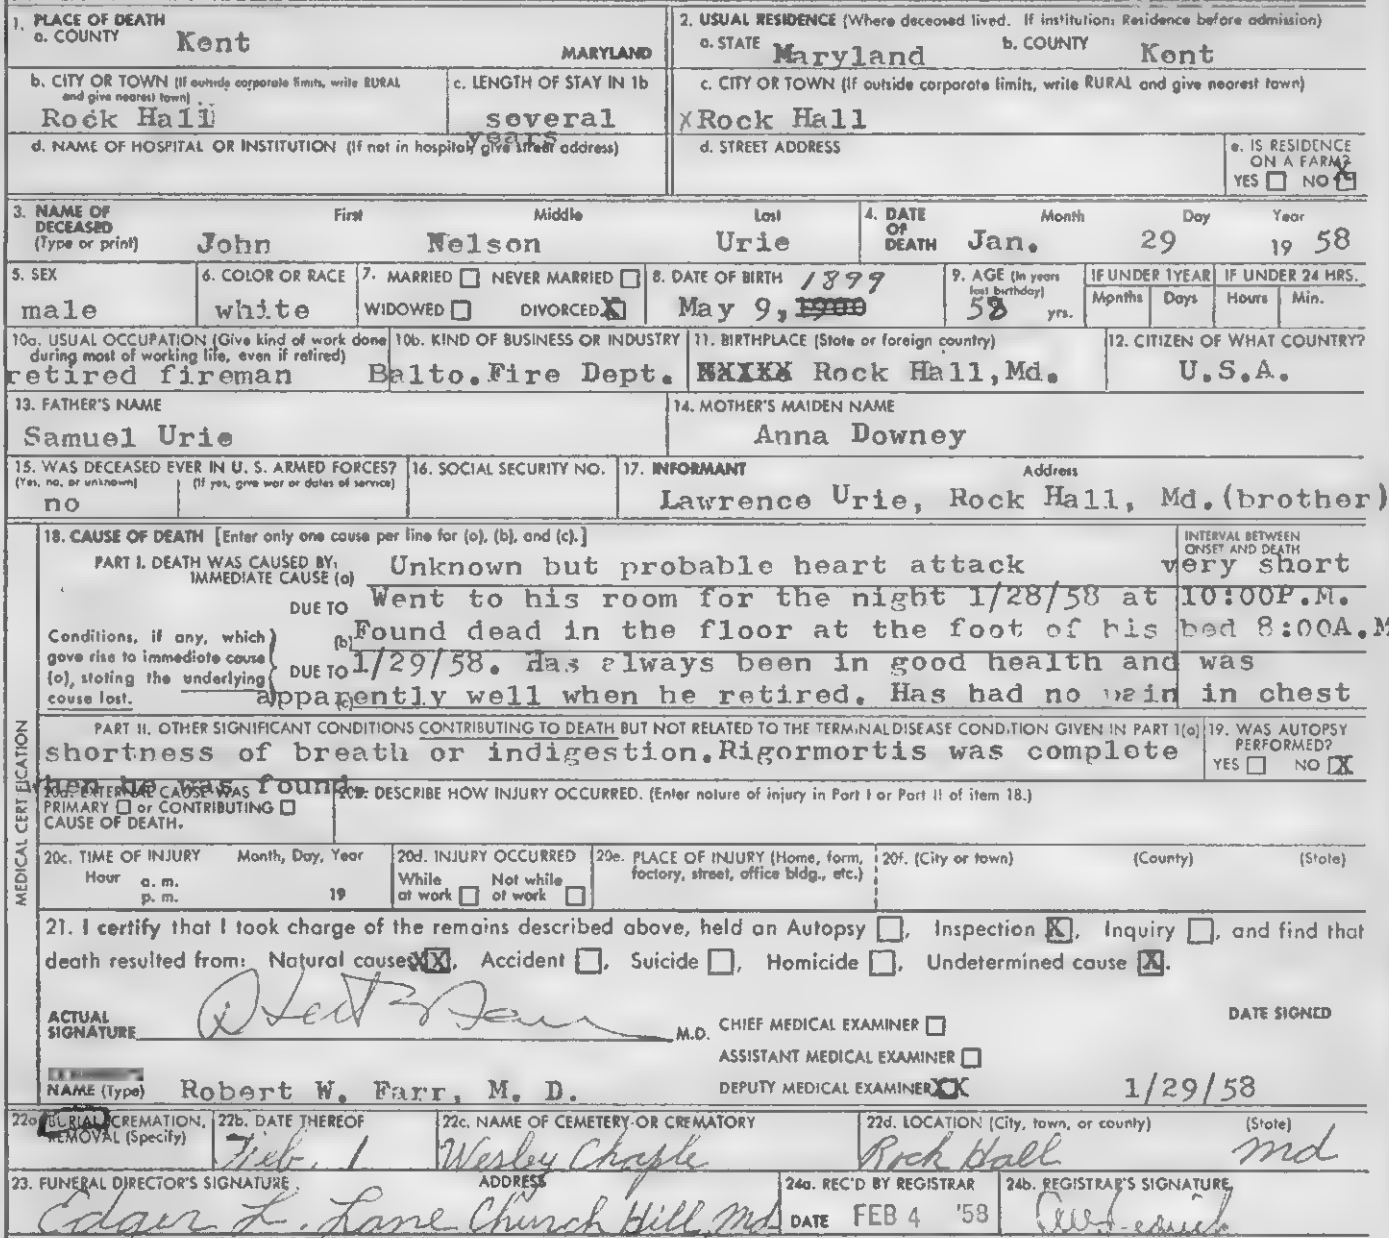 1. PLACE OF DEATH
a. COUNTY Kent MARYLAND
2. USUAL RESIDENCE (Where deceased lived. If institution: Residence before admission)
a. STATE Maryland b. COUNTY Kent
b. CITY OR TOWN (If outside corporate limits, write RURAL and give nearest town)
Rock Hall
c. LENGTH OF STAY IN 1b
several
years
c. CITY OR TOWN (If outside corporate limits, write RURAL and give nearest town)
X Rock Hall
d. NAME OF HOSPITAL OR INSTITUTION (If not in hospital, give street address)
d. STREET ADDRESS
e. IS RESIDENCE
ON A FARM?
YES NO X
3. NAME OF DECEASED (Type or print)
First Middle Last
John Nelson Urie
4. DATE OF DEATH
Month Day Year
Jan. 29 19 58
5. SEX
male
6. COLOR OR RACE
white
7. MARRIED NEVER MARRIED
WIDOWED DIVORCED X
8. DATE OF BIRTH 1899
May 9, 1900
9. AGE (In years last birthday)
58 yrs.
IF UNDER 1 YEAR
Months Days
IF UNDER 24 HRS.
Hours Min.
10a. USUAL OCCUPATION (Give kind of work done during most of working life, even if retired)
retired fireman
10b. KIND OF BUSINESS OR INDUSTRY
Balto.Fire Dept.
11. BIRTHPLACE (State or foreign country)
Rock Hall,Md.
12. CITIZEN OF WHAT COUNTRY?
U.S.A.
13. FATHER'S NAME
Samuel Urie
14. MOTHER'S MAIDEN NAME
Anna Downey
15. WAS DECEASED EVER IN U. S. ARMED FORCES?
(Yes, no, or unknown) (If yes, give war or dates of service)
no
16. SOCIAL SECURITY NO.
17. INFORMANT Address
Lawrence Urie, Rock Hall, Md.(brother)
MEDICAL CERTIFICATION
18. CAUSE OF DEATH [Enter only one cause per line for (a), (b), and (c).]
INTERVAL BETWEEN
ONSET AND DEATH
PART I. DEATH WAS CAUSED BY:
IMMEDIATE CAUSE (a) Unknown but probable heart attack very short
DUE TO Went to his room for the night 1/28/58 at 10:00P.M.
Conditions, if any, which gave rise to immediate cause (a), stating the underlying cause last.
(b) Found dead in the floor at the foot of his bed 8:00A.M
DUE TO 1/29/58. Has always been in good health and was
(c) apparently well when he retired. Has had no pain in chest
PART II. OTHER SIGNIFICANT CONDITIONS CONTRIBUTING TO DEATH BUT NOT RELATED TO THE TERMINAL DISEASE CONDITION GIVEN IN PART 1(a)
shortness of breath or indigestion.Rigormortis was complete
when he was found.
19. WAS AUTOPSY
PERFORMED?
YES NO X
20a. EXTERNAL CAUSE WAS
PRIMARY or CONTRIBUTING
CAUSE OF DEATH.
20b. DESCRIBE HOW INJURY OCCURRED. (Enter nature of injury in Part I or Part II of item 18.)
20c. TIME OF INJURY Month, Day, Year
Hour a. m.
p. m. 19
20d. INJURY OCCURRED
While at work Not while at work
20e. PLACE OF INJURY (Home, form, factory, street, office bldg., etc.)
20f. (City or town) (County) (State)
21. I certify that I took charge of the remains described above, held an Autopsy , Inspection X, Inquiry , and find that
death resulted from: Natural causes XX, Accident , Suicide , Homicide , Undetermined cause X.
ACTUAL
SIGNATURE M.D.
CHIEF MEDICAL EXAMINER
DATE SIGNED
ASSISTANT MEDICAL EXAMINER
NAME (Type) Robert W. Farr, M. D.
DEPUTY MEDICAL EXAMINER XX 1/29/58
22a. BURIAL, CREMATION,
REMOVAL (Specify)
22b. DATE THEREOF
Feb. 1
22c. NAME OF CEMETERY OR CREMATORY
Wesley Chaple
22d. LOCATION (City, town, or county) (State)
Rock Hall Md
23. FUNERAL DIRECTOR'S SIGNATURE ADDRESS
Edgar L. Lane Church Hill, Md
24a. REC'D BY REGISTRAR
DATE FEB 4 '58
24b. REGISTRAR'S SIGNATURE